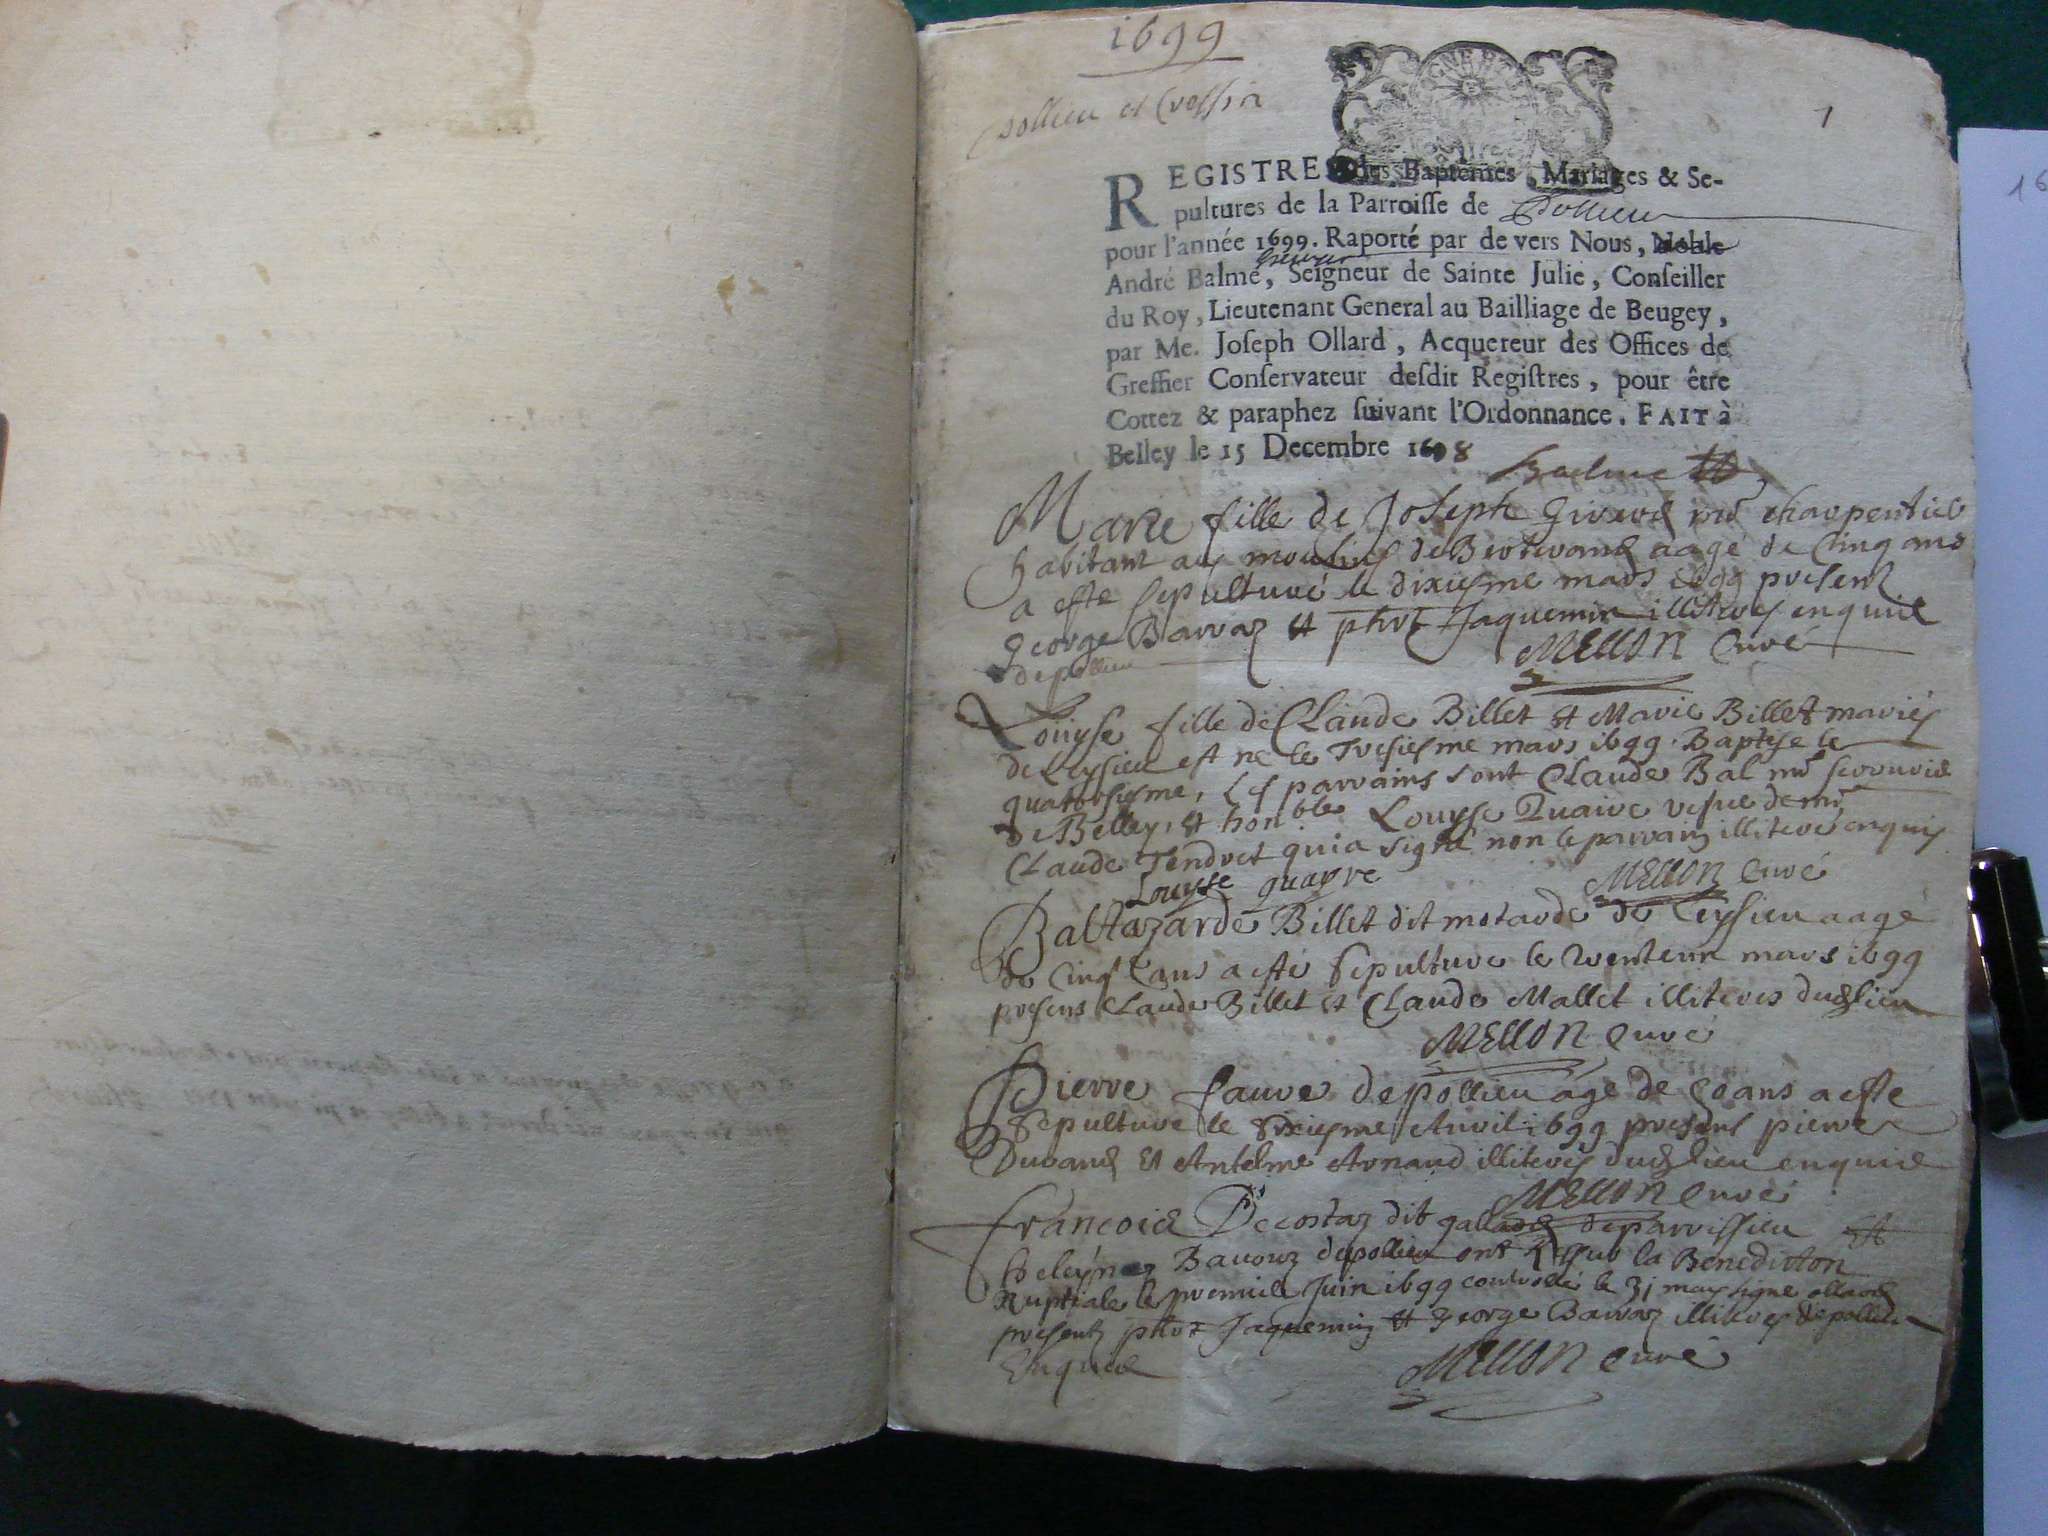 1699
pollieu et Cressin
1
REGISTRE des Baptêmes, Mariages & Se-
pultures de la Parroisse de Pollieu
pour l'année 1699. Raporté par de vers Nous, Noble
André Balme, Seigneur de Sainte Julie, Conseiller
du Roy, Lieutenant General au Bailliage de Beugey,
par Me. Joseph Ollard, Acquereur des Offices de
Greffier Conservateur desdit Registres, pour être
Cottez & paraphez suivant l'Ordonnance. FAIT à
Belley le 15 Decembre 1698
Balme
Marie fille de Joseph Girerd mre charpentier
habitant aux moulins de Brotterand aagé de Cinq ans
a esté sepulturé le dixiesme mars 1699 present
george Barraz et phot Jaquemin illiteres enquis
de pollieu
MELLON Curé
Louyse fille de Claude Billet et Marie Billet mariés
de Leysieu est ne le Tresiesme mars 1699. Baptise le
quatorsiesme, Les parrains sont Claude Bal mre serrurie
de Belley, et honble Louyse Quaire vefue de mre
Claude Tendret qui a signé non le parrain illiteré enquis
Louyse quayre
MELLON Curé
Baltazarde Billet dit motarde de Leysieu aagé
de Cinq ans a esté sepulture le trenteun mars 1699
presens Claude Billet et Claude Mallet illiteres dudlieu
MELLON Curé
Pierre faure de pollieu agé de 80 ans a esté
sepulture le sixiesme Auril 1699 presens pierre
Durand et Antelme Arnaud illiterés dudlieu enquis
MELLON Curé
francois Decostaz dit de parvissieu et
heleyne Barouz de pollieu ont Ressu la Benediction
Nuptiale le premier Juin 1699 controllé le 31 may signe ollard
presents phot Jaquemin et george Barraz illiteres de pollieu
Enquis
MELLON Curé